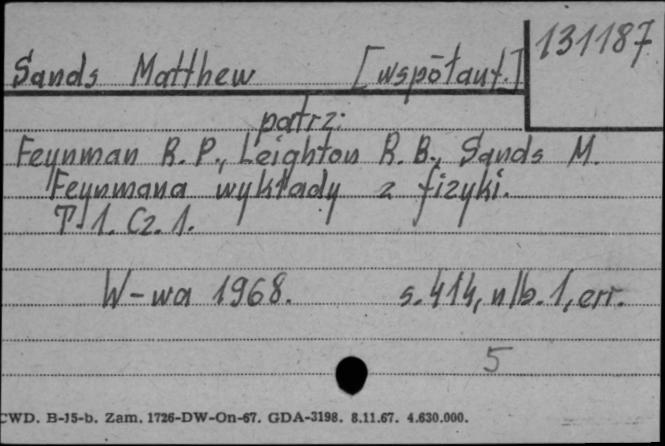 131187
Sands Matthew [współaut.]
patrz:
Feynman R. P., Leighton R. B., Sands M.
Feynmana wykłady z fizyki.
T. 1. Cz. 1.
W-wa 1968. s. 414, nlb. 1, err.
5
CWD. B-15-b. Zam. 1726-DW-On-67. GDA-3198. 8.11.67. 4.630.000.